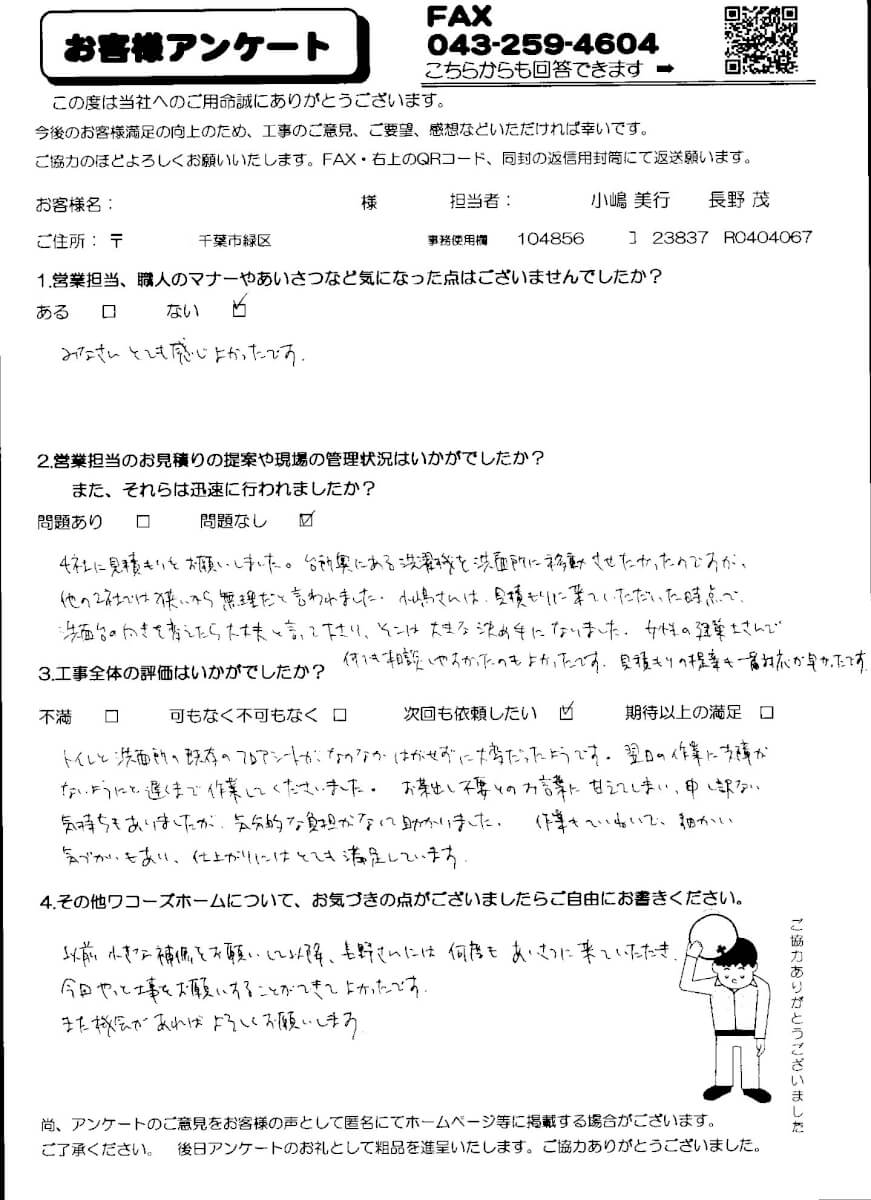 お客様アンケート
FAX
043-259-4604
こちらからも回答できます ➡
この度は当社へのご用命誠にありがとうございます。
今後のお客様満足の向上のため、工事のご意見、ご要望、感想などいただければ幸いです。
ご協力のほどよろしくお願いいたします。FAX・右上のQRコード、同封の返信用封筒にて返送願います。
お客様名： 様 担当者： 小嶋 美行 長野 茂
ご住所：〒 千葉市緑区 事務使用欄 104856 23837 R0404067
1.営業担当、職人のマナーやあいさつなど気になった点はございませんでしたか？
ある □ ない ☑
みなさん とても感じよかったです.
2.営業担当のお見積りの提案や現場の管理状況はいかがでしたか？
また、それらは迅速に行われましたか？
問題あり □ 問題なし ☑
4社に見積もりをお願いしました。台所奥にある洗濯機を洗面所に移動させたかったのですが、
他の2社では狭いから無理だと言われました. 小嶋さんは、見積もりに来ていただいた時点で、
洗面台の向きを変えたら大丈夫と言って下さり、そこは大きな決め手になりました. 女性の建築士さんで
何でも相談しやすかったのもよかったです. 見積もりの提案も一番対応が早かったです
3.工事全体の評価はいかがでしたか？
不満 □ 可もなく不可もなく □ 次回も依頼したい ☑ 期待以上の満足 □
トイレと洗面所の既存のフロアシートが、なかなかはがせずに大変だったようです. 翌日の作業に支障が
ないようにと遅くまで作業してくださいました. お茶出し不要とのお言葉に甘えてしまい、申し訳ない
気持ちもありましたが、気分的な負担がなくて助かりました. 作業もていねいで、細かい
気づかいもあり、仕上がりにはとても満足しています.
4.その他ワコーズホームについて、お気づきの点がございましたらご自由にお書きください。
以前 小さな補修をお願いして以降、長野さんには何度もあいさつに来ていただき.
今回やっと工事をお願いすることができてよかったです.
また機会があればよろしくお願いします
ご協力ありがとうございました
尚、アンケートのご意見をお客様の声として匿名にてホームページ等に掲載する場合がございます。
ご了承ください。 後日アンケートのお礼として粗品を進呈いたします。ご協力ありがとうございました。